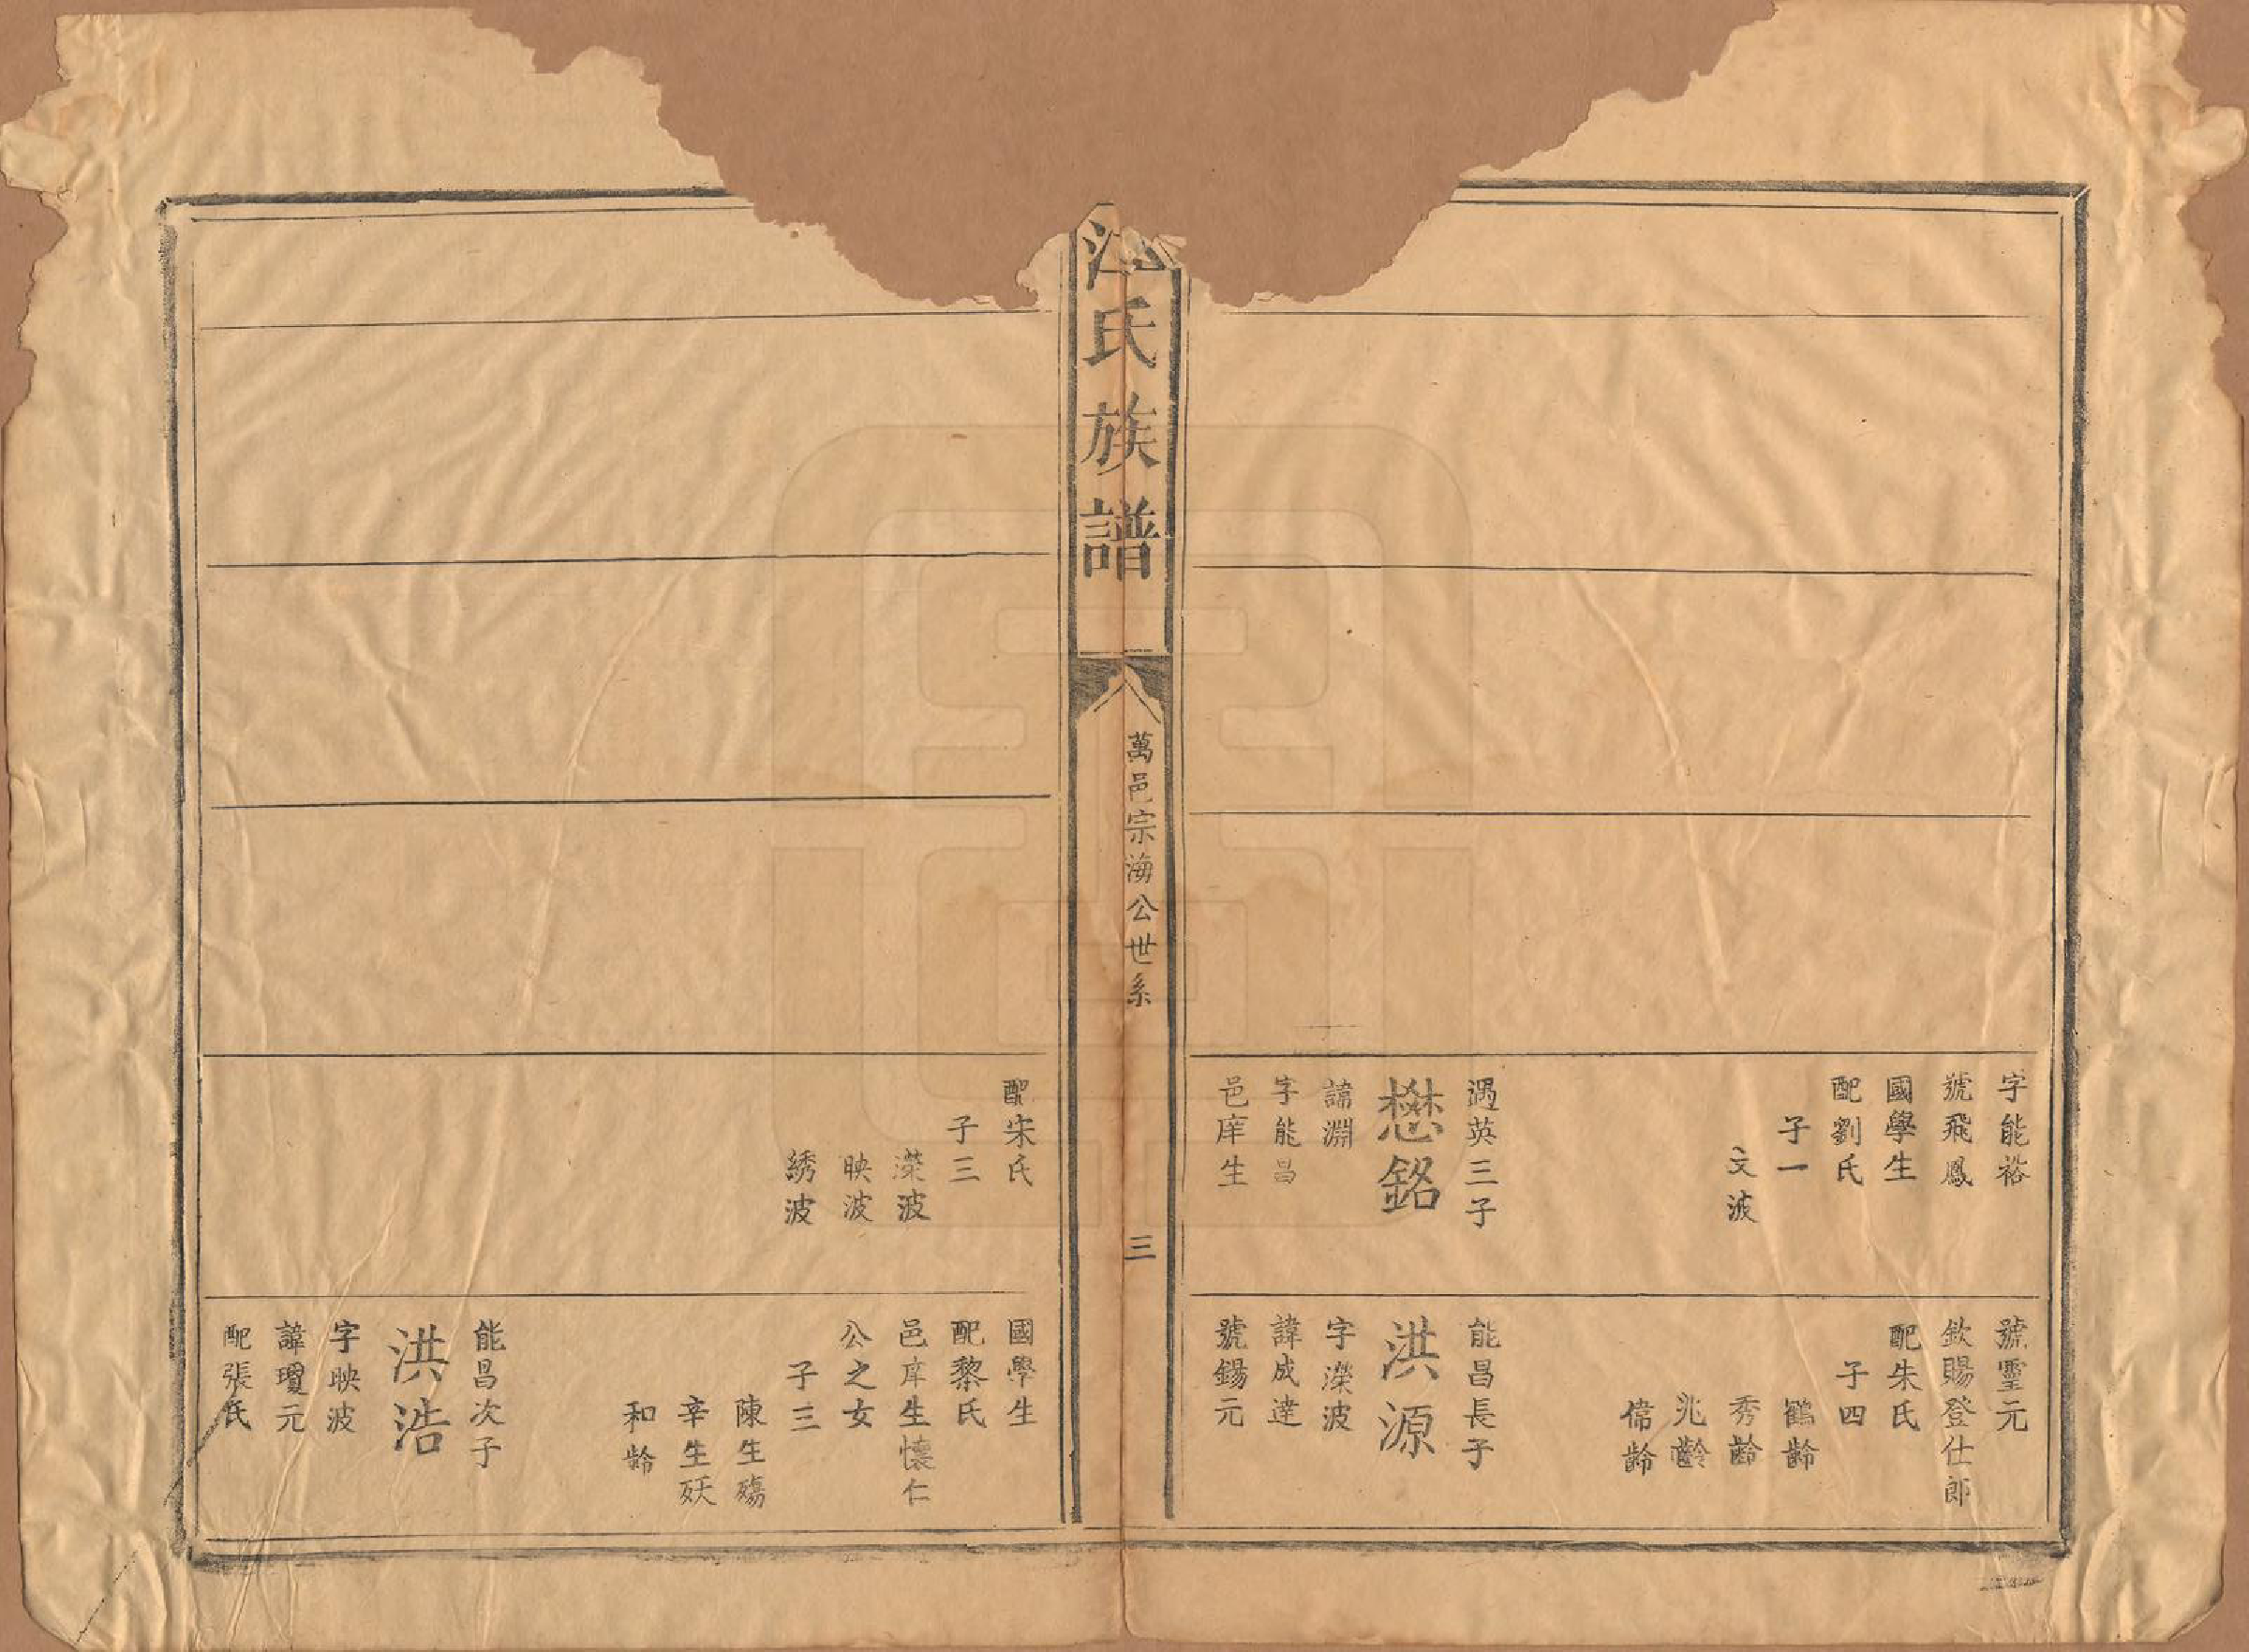 字能裕
號飛鳳
國學生
配劉氏
子一
文波
遇英三子
懋銘
諱淵
字能昌
邑庠生
號靈元
欽賜登仕郎
配朱氏
子四
鶴齡
秀齡
兆齡
偉齡
能昌長子
洪源
字濚波
諱成達
號錫元
氏族譜
萬邑宗海公世系
三
配朱氏
子三
濚波
映波
綉波
國學生
配黎氏
邑庠生懷仁
公之女
子三
陳生殤
辛生殀
和齡
能昌次子
洪浩
字映波
諱瓊元
配張氏